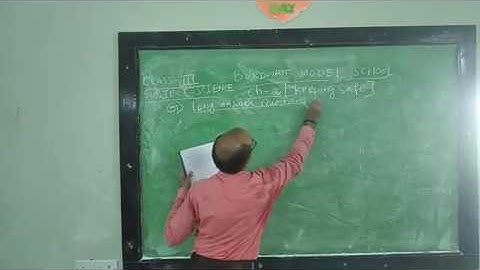 DAY
CLASS-III BURDWAN MODEL SCHOOL
SUBJECT-SCIENCE Ch-2 [Keeping safe]
Long answer questions